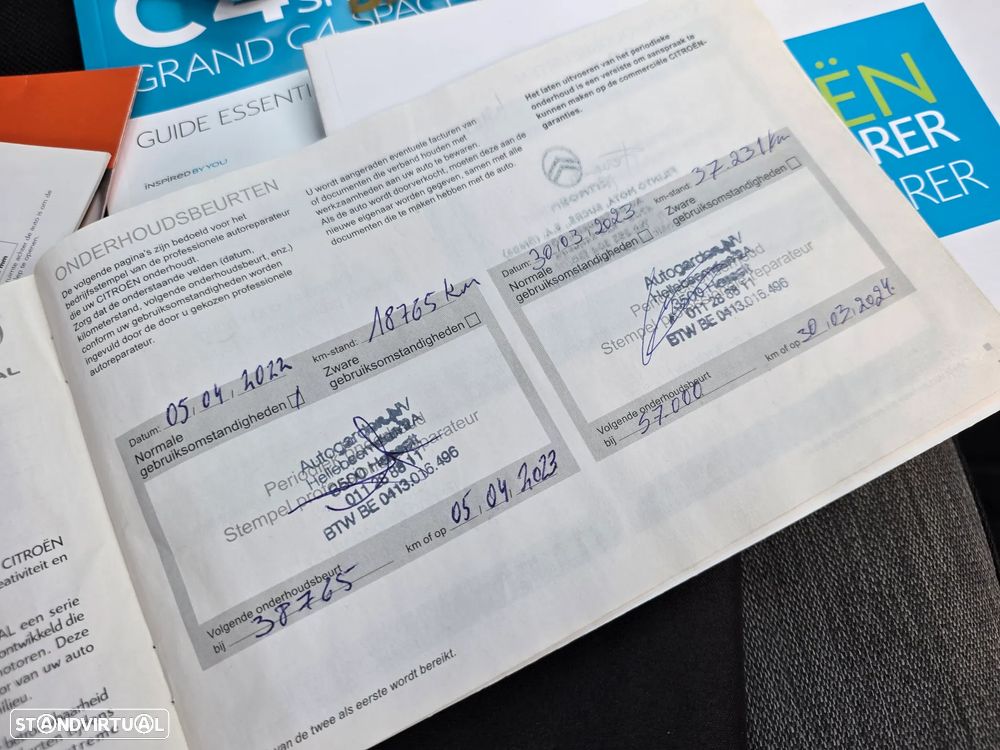 C4
GRAND C4 SPAC
GUIDE ESSENTI
INSPIRED BY YOU
ËN
RER
RER
ONDERHOUDSBEURTEN
De volgende pagina's zijn bedoeld voor het
bedrijfsstempel van de professionele autoreparateur
die uw CITROËN onderhoudt.
Zorg dat de onderstaande velden (datum,
kilometerstand, volgende onderhoudsbeurt, enz.)
conform uw gebruiksomstandigheden worden
ingevuld door de door u gekozen professionele
autoreparateur.
U wordt aangeraden eventuele facturen van
of documenten die verband houden met
werkzaamheden aan uw auto te bewaren.
Als de auto wordt doorverkocht, moeten deze aan de
nieuwe eigenaar worden gegeven, samen met alle
documenten die te maken hebben met de auto.
Het laten uitvoeren van het periodieke
onderhoud is een vereiste om aanspraak te
kunnen maken op de commerciële CITROËN-
garanties.
Datum: 05.04.2022 km-stand: 18765 km
Normale gebruiksomstandigheden
Zware gebruiksomstandigheden
011 28 69 11
BTW BE 0413.016.496
Volgende onderhoudsbeurt
bij 38765 km of op 05.04.2023
Datum: 30.03.2023 km-stand: 37.231 km
Normale gebruiksomstandigheden
Zware gebruiksomstandigheden
011 28 69 11
BTW BE 0413.016.496
Volgende onderhoudsbeurt
bij 57.000 km of op 30.03.2024.
van de twee als eerste wordt bereikt.
CITROËN
eativiteit en
AL een serie
ontwikkeld die
motoren. Deze
or van uw auto
ilieu.
STANDVIRTUAL